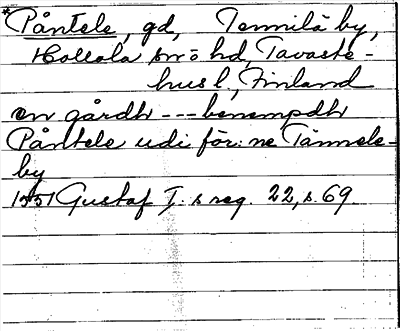 *Påntele, gd, Tennilä by,
Hollola sn o hd, Tavaste-
hus l, Finland
en gårdh --- benempdh
Påntele udi för:ne Tännele-
by
1551 Gustaf I:s reg. 22, s. 69.